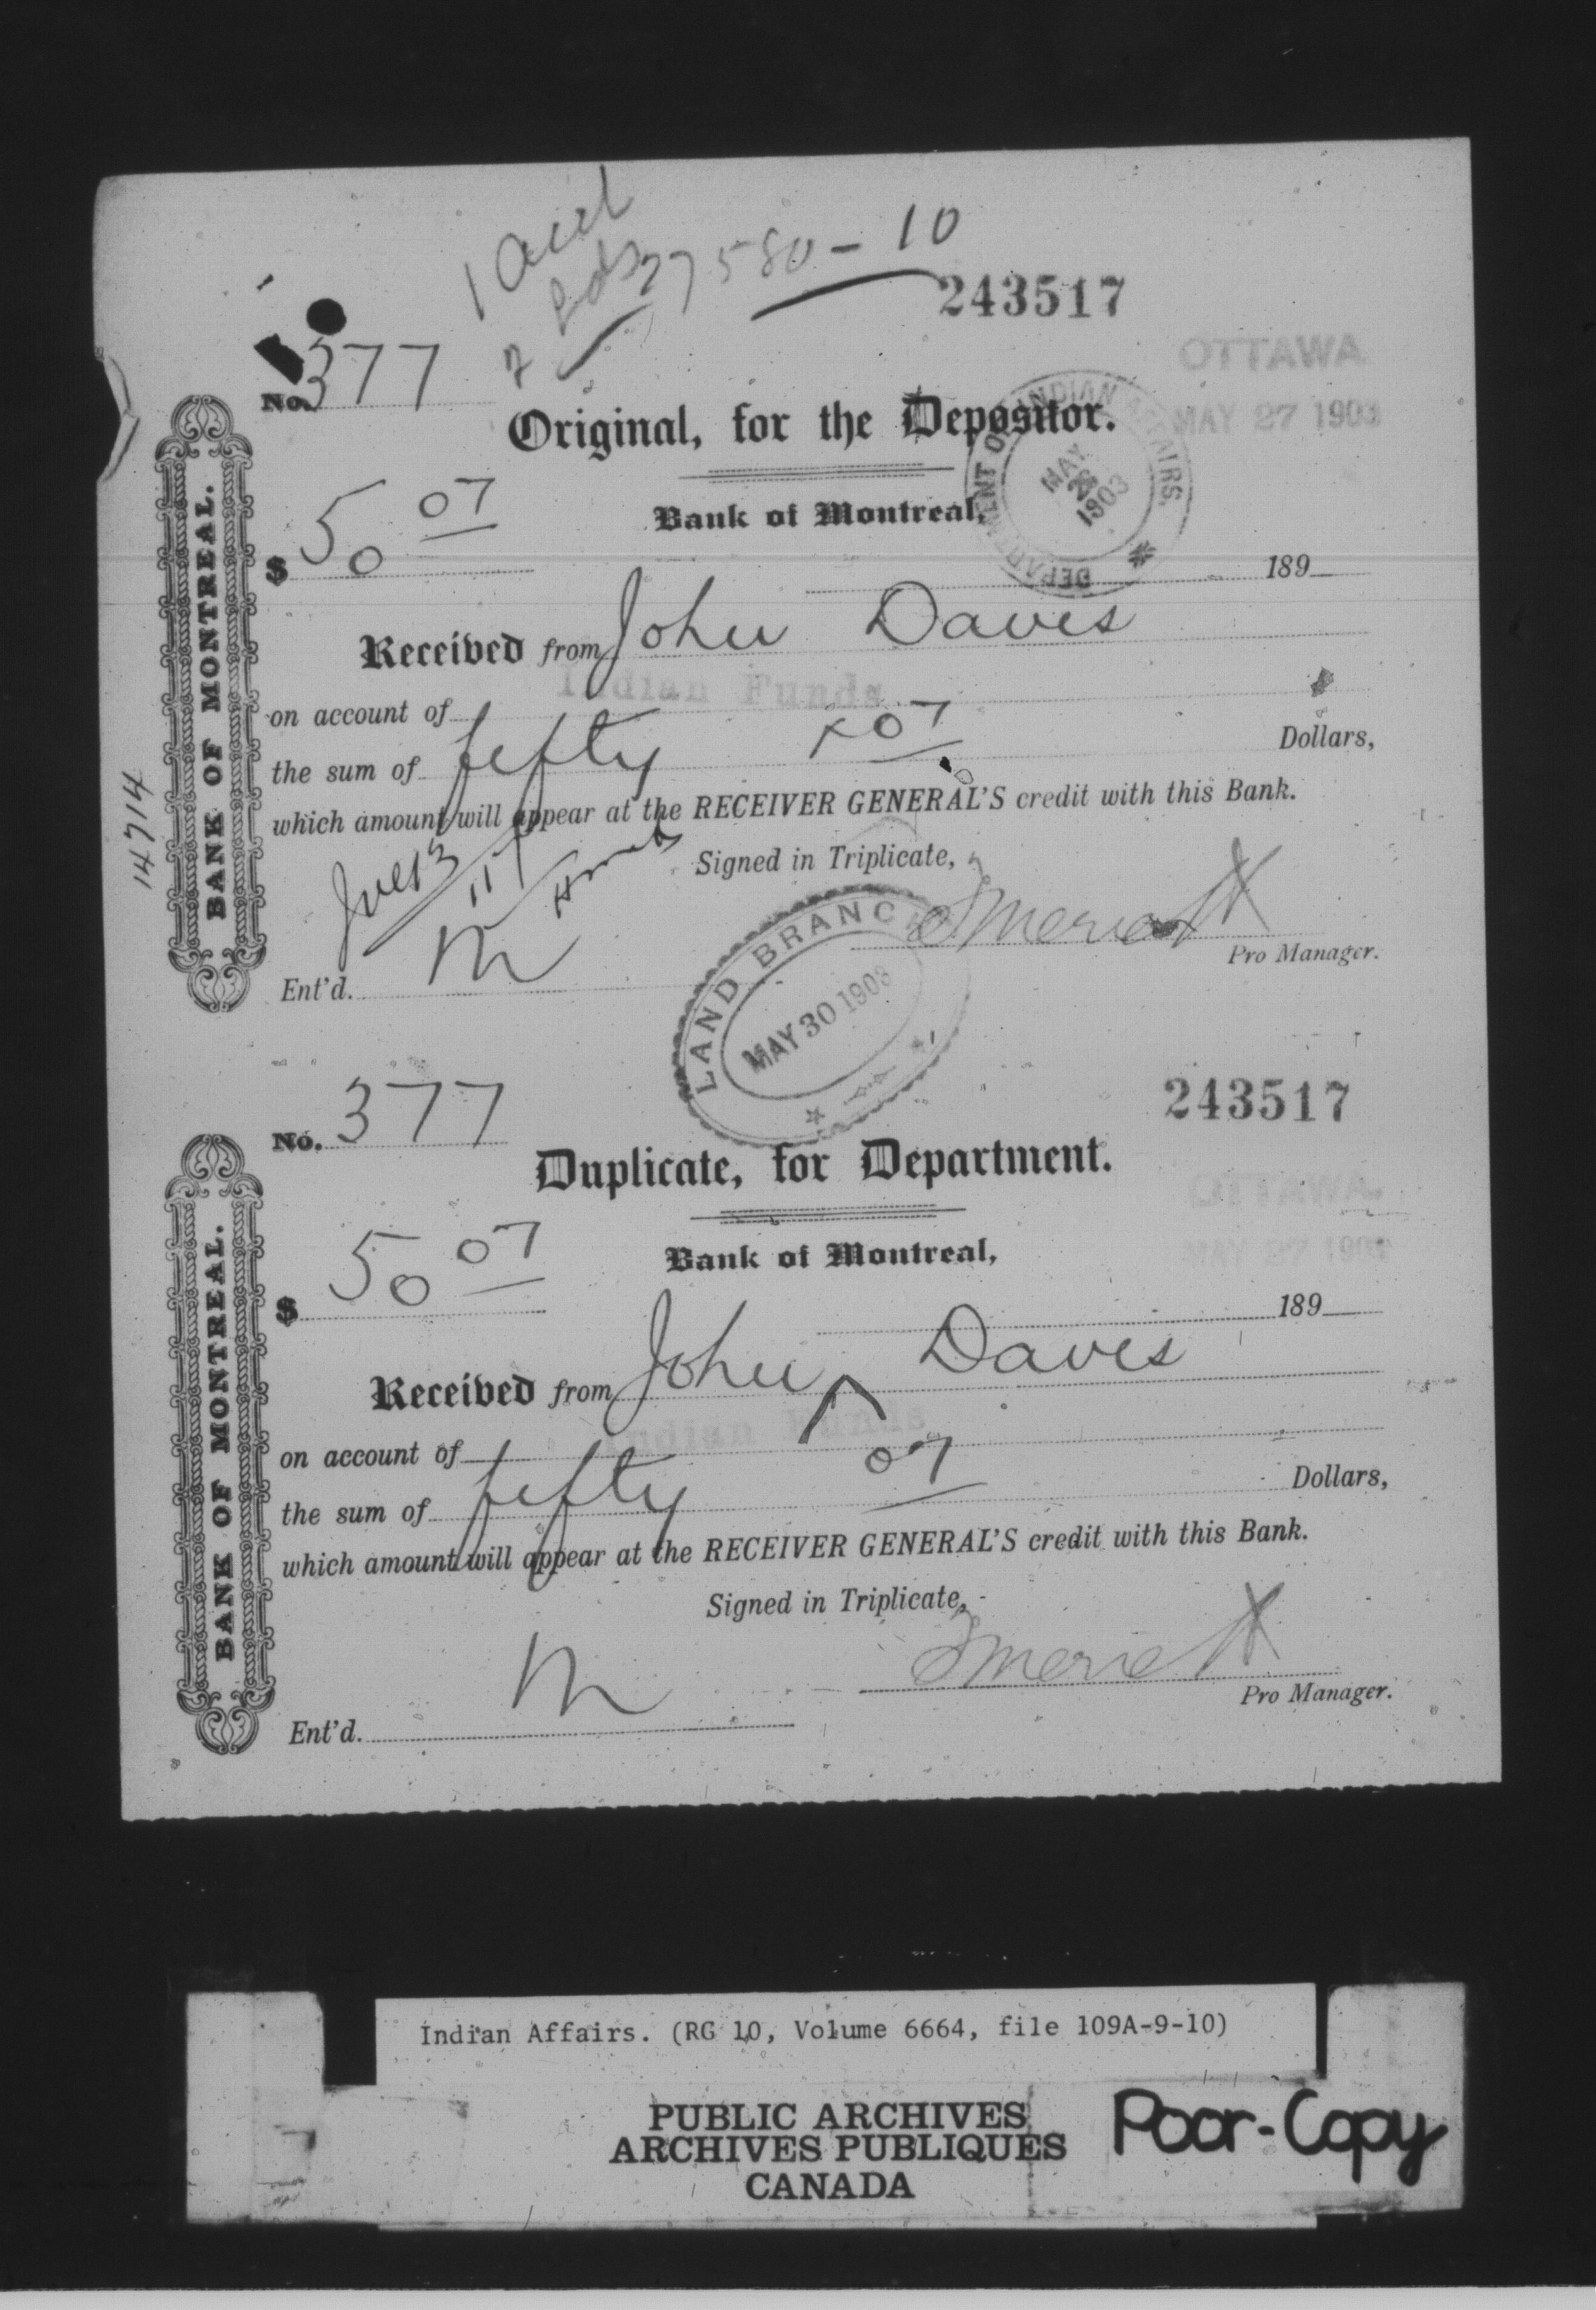 1
27580-10
243517
OTTAWA
MAY 27 1903
No. 377
Original, for the Depositor.
DEPARTMENT OF INDIAN AFFAIRS.
MAY 28 1903
Bank of Montreal,
$ 50 07
189
Received from John Daves
Indian Funds
on account of
the sum of fifty x 07 Dollars,
which amount will appear at the RECEIVER GENERAL'S credit with this Bank.
Signed in Triplicate,
Pro Manager.
Ent'd. M
BANK OF MONTREAL.
14714
LAND BRANCH
MAY 30 1903
243517
No. 377
Duplicate, for Department.
OTTAWA.
MAY 27 1903
Bank of Montreal,
$ 50 07
189
Received from John Daves
Indian Funds
on account of
the sum of fifty 07 Dollars,
which amount will appear at the RECEIVER GENERAL'S credit with this Bank.
Signed in Triplicate,
Pro Manager.
Ent'd. M
BANK OF MONTREAL.
Indian Affairs. (RG 10, Volume 6664, file 109A-9-10)
PUBLIC ARCHIVES
ARCHIVES PUBLIQUES
CANADA
Poor-Copy